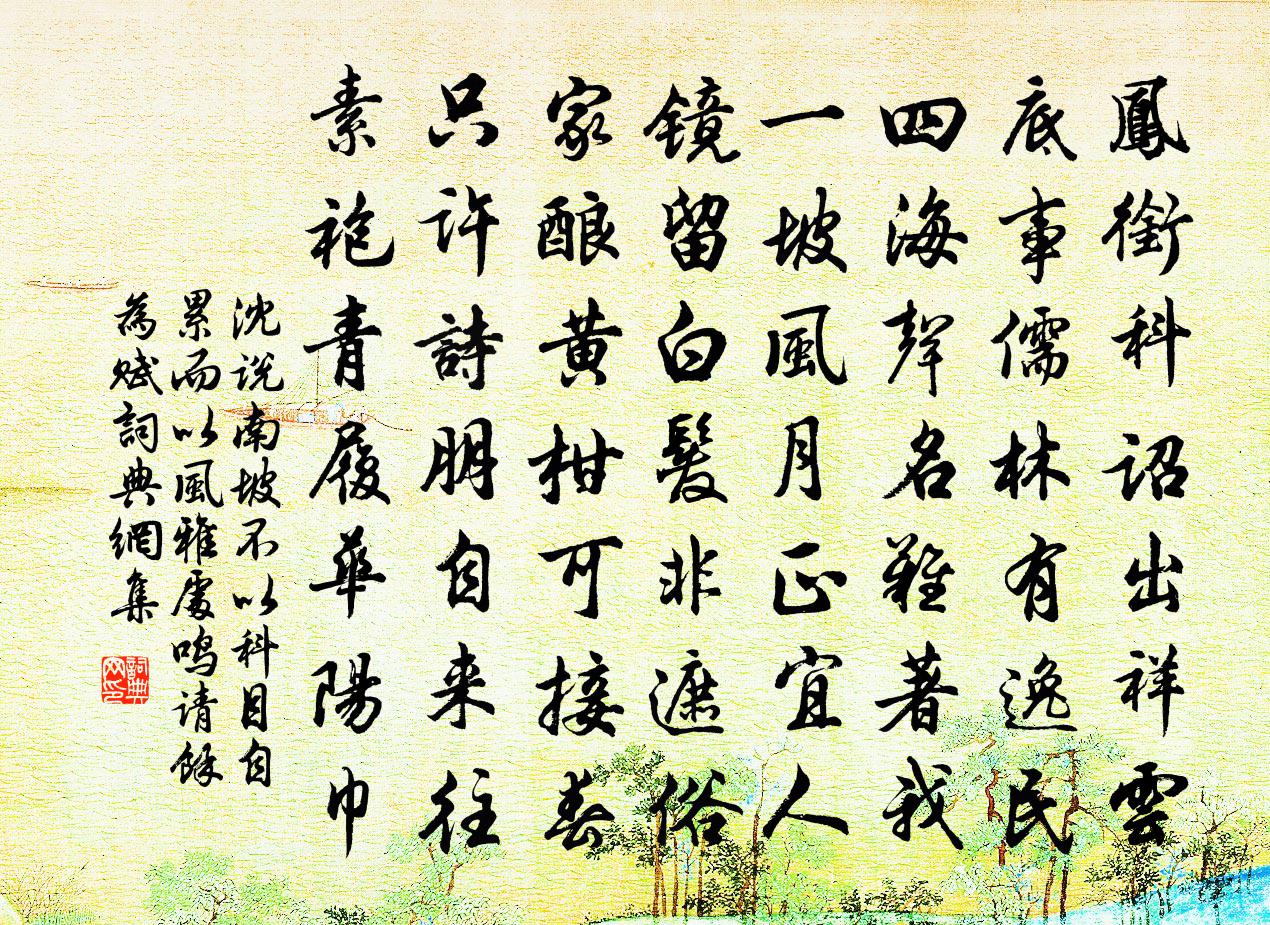 鳳銜科詔出祥雲
底事儒林有逸民
四海聲名難著我
一坡風月正宜人
镜留白髮非遮俗
家酿黄柑可接春
只许詩朋自来往
素袍青履華陽巾
沈说南坡不以科目自
累而以風雅處鸣请余
為赋詞典網集
詞典网印